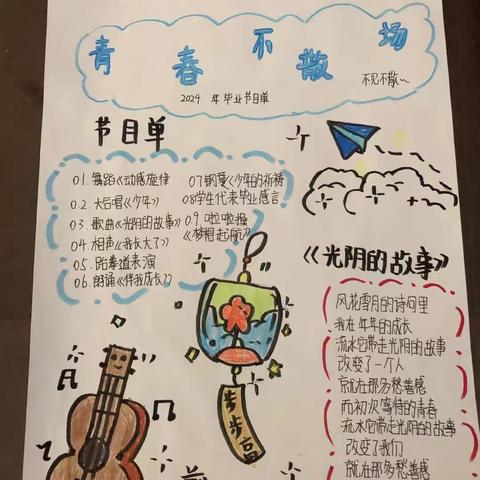 青春不散场
不见不散~
2024 年毕业节目单
节目单
01.舞蹈《动感旋律
02.大合唱《少年》
03.歌曲《光阴的故事》
04.相声《我长大了》
05.跆拳道表演
06.朗诵《伴我成长》
07钢琴《少年的祈祷
08学生代表毕业感言
09.啦啦操
《梦想起航》
步步高
《光阴的故事》
风花雪月的诗句里
我在年年的成长
流水它带走光阴的故事
改变了一个人
就在那多愁善感
而初次等待的青春
流水它带走光阴的故事
改变了我们
就在那多愁善感